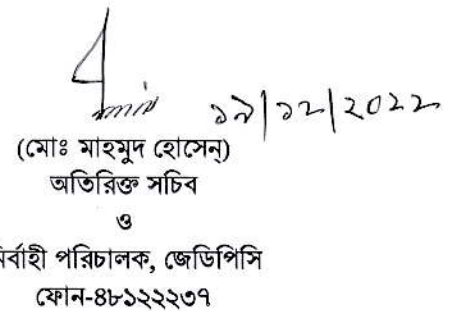 ১৯/১২/২০২২
(মোঃ মাহমুদ হোসেন)
অতিরিক্ত সচিব
ও
নির্বাহী পরিচালক, জেডিপিসি
ফোন-৪৮১২২২৩৭